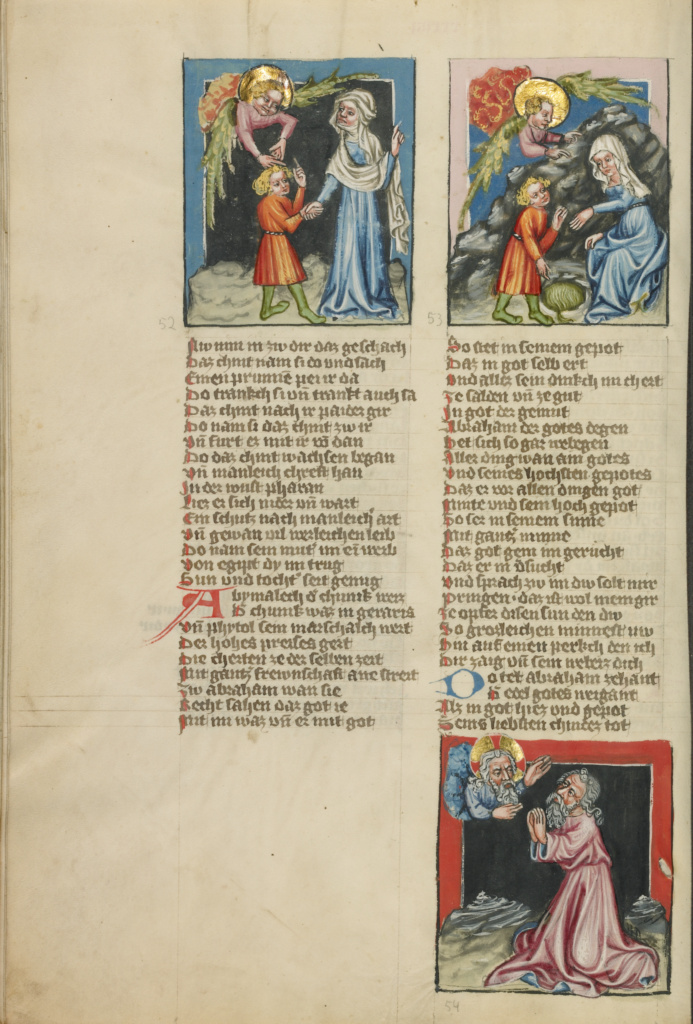 52
Aw nim in zw dir daz geschach
Daz chint nam si do und sach
Einen prunne pei ir da
Do trankch si vn̄ trankt auch sa
Daz chint nach ir paider gir
Do nam si daz chint zw ir
Vn̄ furt er mit ir vō dan
Do daz chint wachsen began
Vn̄ manleich chreft han
In der wust pharan
Liez er sich nider vn̄ wart
Ein schutz nach manleich' art
Vn̄ gewan vil werleichen leib
Do nam sein mut' im ein weib
Von egipt dy im trug
Sun vnd tocht' seit genug
Abymalech d' chunik wert
D' chunik waz in geraris
Vn̄ phytol sein marschalch wert
Der hohes preises gert
Die cherten ze der selben zeit
Mit gantz frewnschaft ane streit
Zw abraham wan sie
Recht sahen daz got ie
Mit im waz vn̄ er mit got
53
So stet in seinem gepot
Daz in got selb ert
Vnd allez sein dinkch im chert
Ze salden vn̄ ze gut
In got der gemut
Abraham der gotes degen
Het sich so gar bebegen
Aller ding wan am gotes
Vnd seines hochsten gepotes
Daz er vor allen dingen got
Mint vnd sein hoch gepot
So ser in seinem sinne
Mit gantz minne
Daz got gein im gerucht
Daz er in v'sucht
Vnd sprach zw im dw solt mir
Pringen daz ist wol mein gir
Ze opfer disen sun den dw
So grozleichen minnest nw
Hin auf einen perkch den ich
Dir zaig vn̄ sein weiz dich
Do tet abraham zehant
D' edel gotes weigant
Alz in got hiez vnd gepot
Seins liebsten chindez tot
54